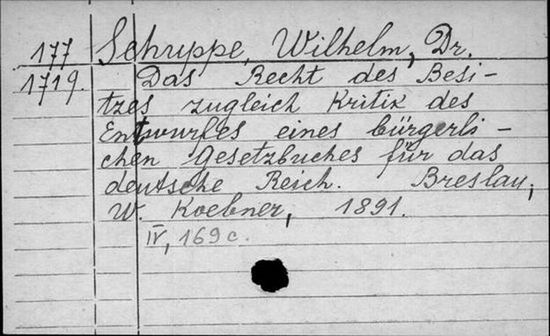 177 Schuppe, Wilhelm, Dr.
1719. Das Recht des Besi-
tzes zugleich Kritik des
Entwurfes eines bürgerli-
chen Gesetzbuches für das
deutsche Reich. Breslau,
W. Koebner, 1891.
IV, 169 c.